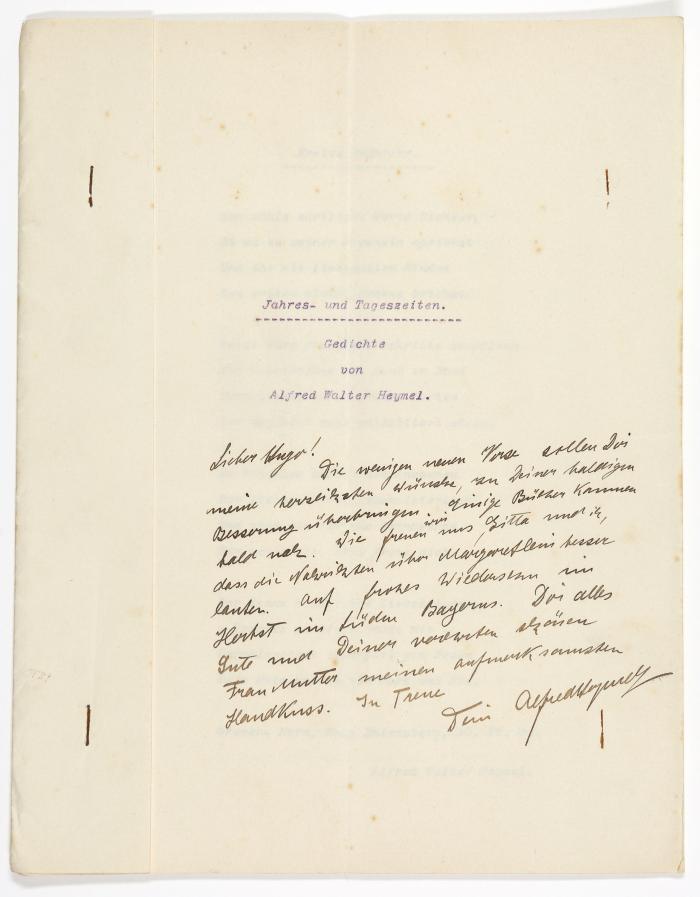 Jahres- und Tageszeiten.
Gedichte
von
Alfred Walter Heymel.
Lieber Hugo!
Die wenigen neuen Verse sollen Dir
meine herzlichsten Wünsche, zu Deiner baldigen
Besserung überbringen. Einige Bücher kommen
bald nach. Wie freuen wir uns, Gitta und ich,
dass die Nachrichten über Margaretlein besser
lauten. Auf frohes Wiedersehn im
Herbst im Süden Bayerns. Dir alles
Gute und Deiner verehrten schönen
Frau Mutter meinen aufmerksamsten
Handkuss. In Treue
Dein AlfredHeymel